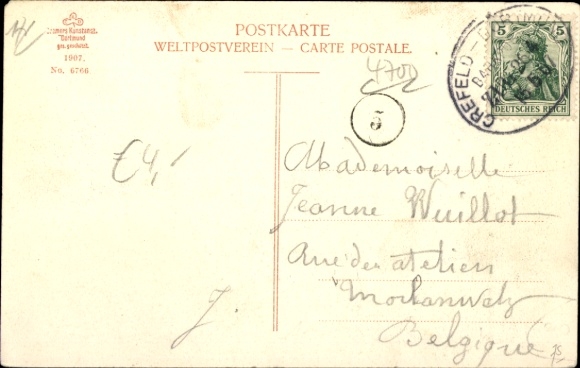 Kunstanst.
Dortmund
ges. geschützt.
1907.
No. 6766
POSTKARTE
WELTPOSTVEREIN — CARTE POSTALE.
4700
5
€4,-
5 5
DEUTSCHES REICH
CREFELD
Mademoiselle
Jeanne Wuillot
Rue des ateliers
Morlanwelz
Belgique
J.